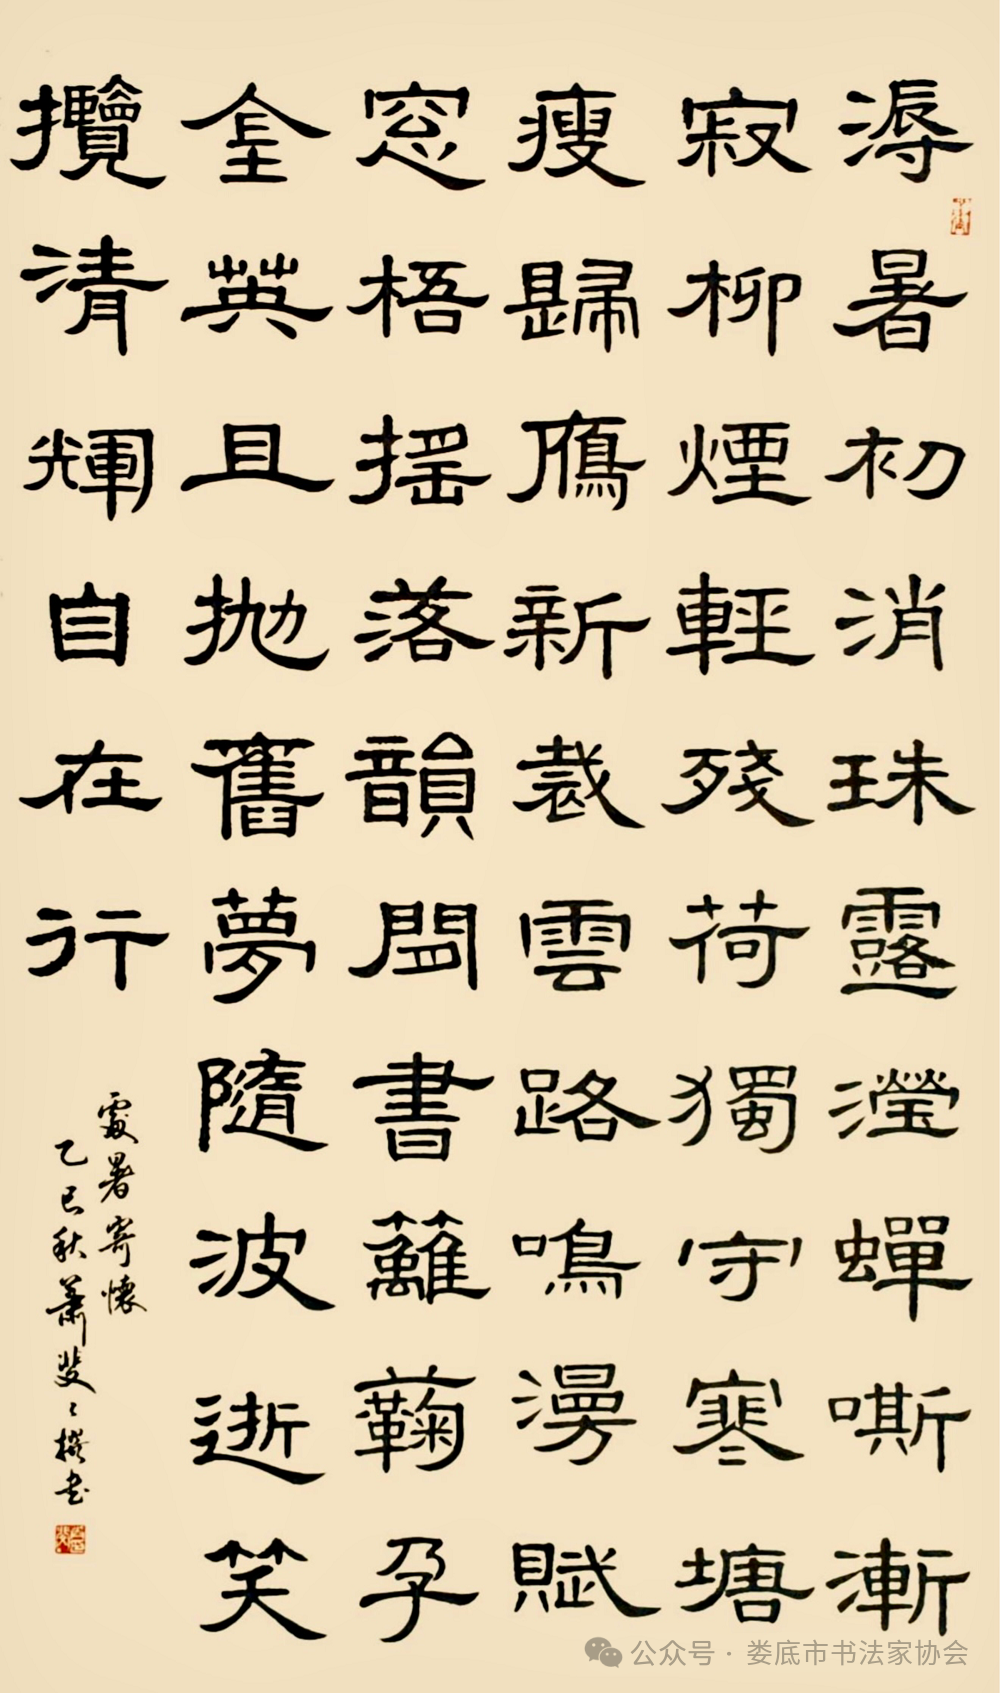 溽暑初消珠露瀅蟬嘶漸
寂柳煙輕殘荷獨守寒塘
瘦歸鴈新裁雲路鳴漫賦
窓梧搖落韻閒書籬蘜孕
金英且抛舊夢隨波逝笑
攬清輝自在行
處暑寄懷
乙巳秋蕭斐斐撰書
公众号·娄底市书法家协会